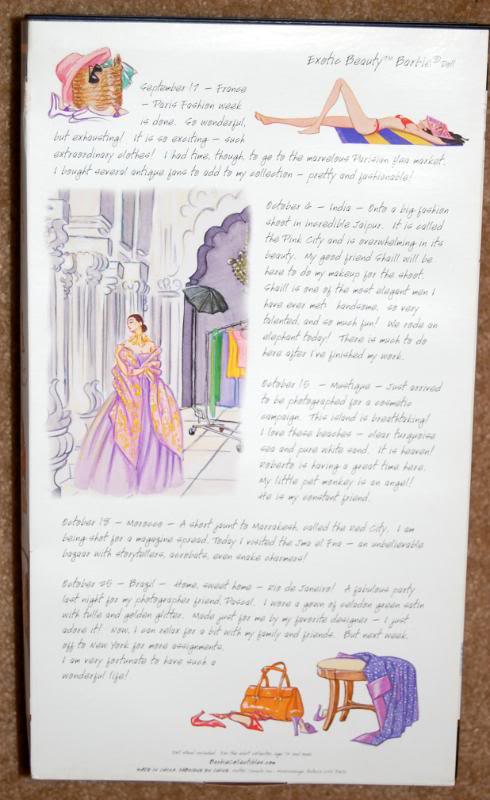 Exotic Beauty™ Barbie® Doll
September 17 – France
– Paris Fashion week
is done. So wonderful,
but exhausting! It is so exciting – such
extraordinary clothes! I had time, though, to go to the marvelous Parisian flea market.
I bought several antique fans to add to my collection – pretty and fashionable!
October 6 – India – Onto a big fashion
shoot in incredible Jaipur. It is called
the Pink City and is overwhelming in its
beauty. My good friend Shaill will be
here to do my makeup for the shoot.
Shaill is one of the most elegant men I
have ever met: handsome, so very
talented, and so much fun! We rode an
elephant today! There is much to do
here after I've finished my work.
October 15 – Mustique – Just arrived
to be photographed for a cosmetic
campaign. This island is breathtaking!
I love these beaches – clear turquoise
sea and pure white sand. It is heaven!
Roberto is having a great time here.
My little pet monkey is an angel!
He is my constant friend.
October 18 – Morocco – A short jaunt to Marrakesh, called the Red City. I am
being shot for a magazine spread. Today I visited the Jma el Fna – an unbelievable
bazaar with storytellers, acrobats, even snake charmers!
October 25 – Brazil – Home, sweet home – Rio de Janeiro! A fabulous party
last night for my photographer friend, Pascal. I wore a gown of celadon green satin
with tulle and golden glitter. Made just for me by my favorite designer – I just
adore it! Now, I can relax for a bit with my family and friends. But next week,
off to New York for more assignments.
I am very fortunate to have such a
wonderful life!
Doll stand included. For the adult collector age 14 and over.
BarbieCollectibles.com
MADE IN CHINA. FABRIQUÉ EN CHINE.